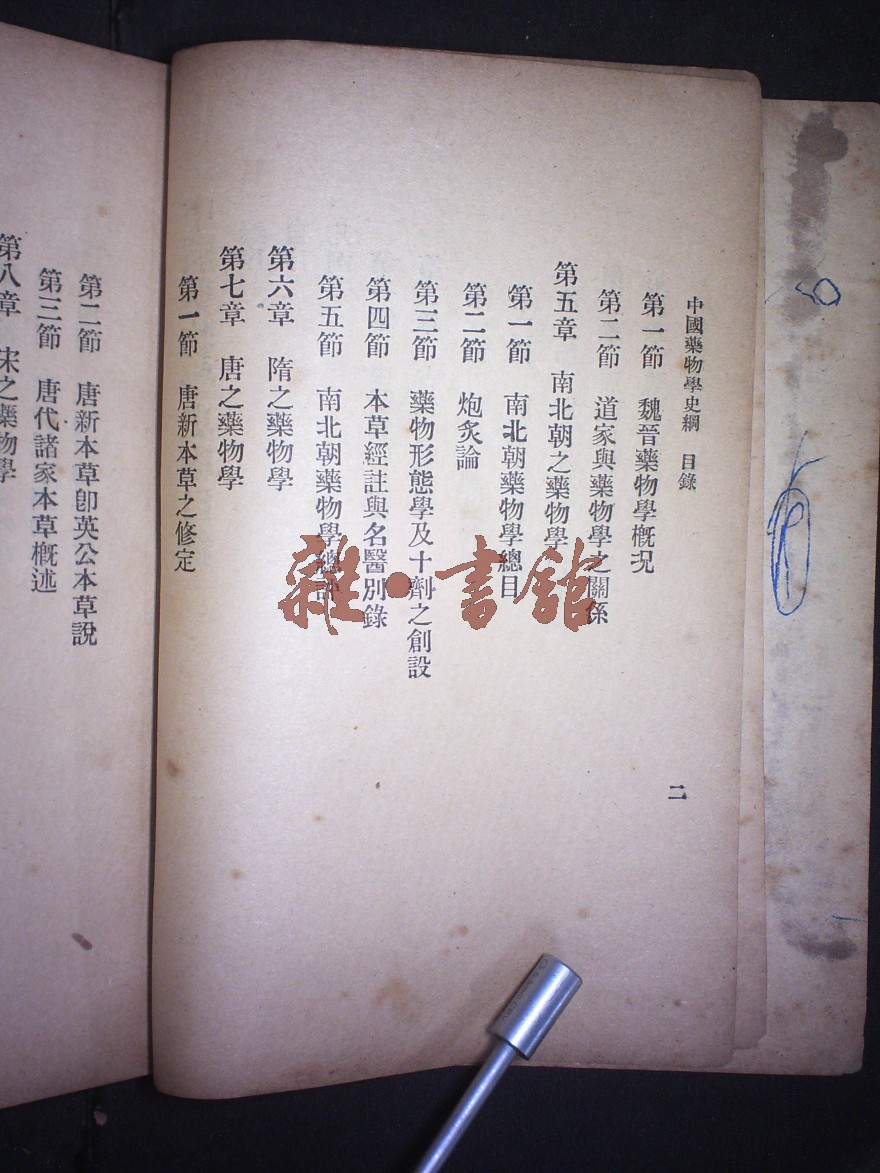 中國藥物學史綱 目錄
第一節 魏晉藥物學概况
第二節 道家與藥物學之關係
第五章 南北朝之藥物學
第一節 南北朝藥物學總目
第二節 炮炙論
第三節 藥物形態學及十劑之創設
第四節 本草經註與名醫別錄
第五節 南北朝藥物學總評
第六章 隋之藥物學
第七章 唐之藥物學
第一節 唐新本草之修定
二
第二節 唐新本草卽英公本草說
第三節 唐代諸家本草概述
第八章 宋之藥物學
雜·書館